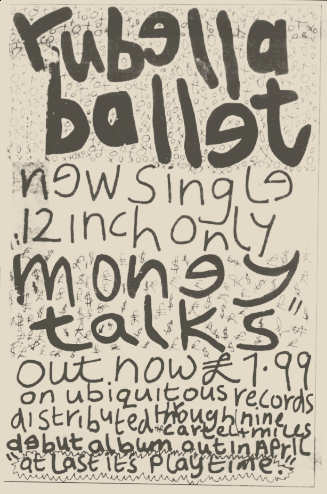 rubella
ballet
new single
12 inch only
money
talks"
out now £1.99
on ubiquitous records
distributed through nine
mile + cartel
debut album out in April
"at last its playtime"